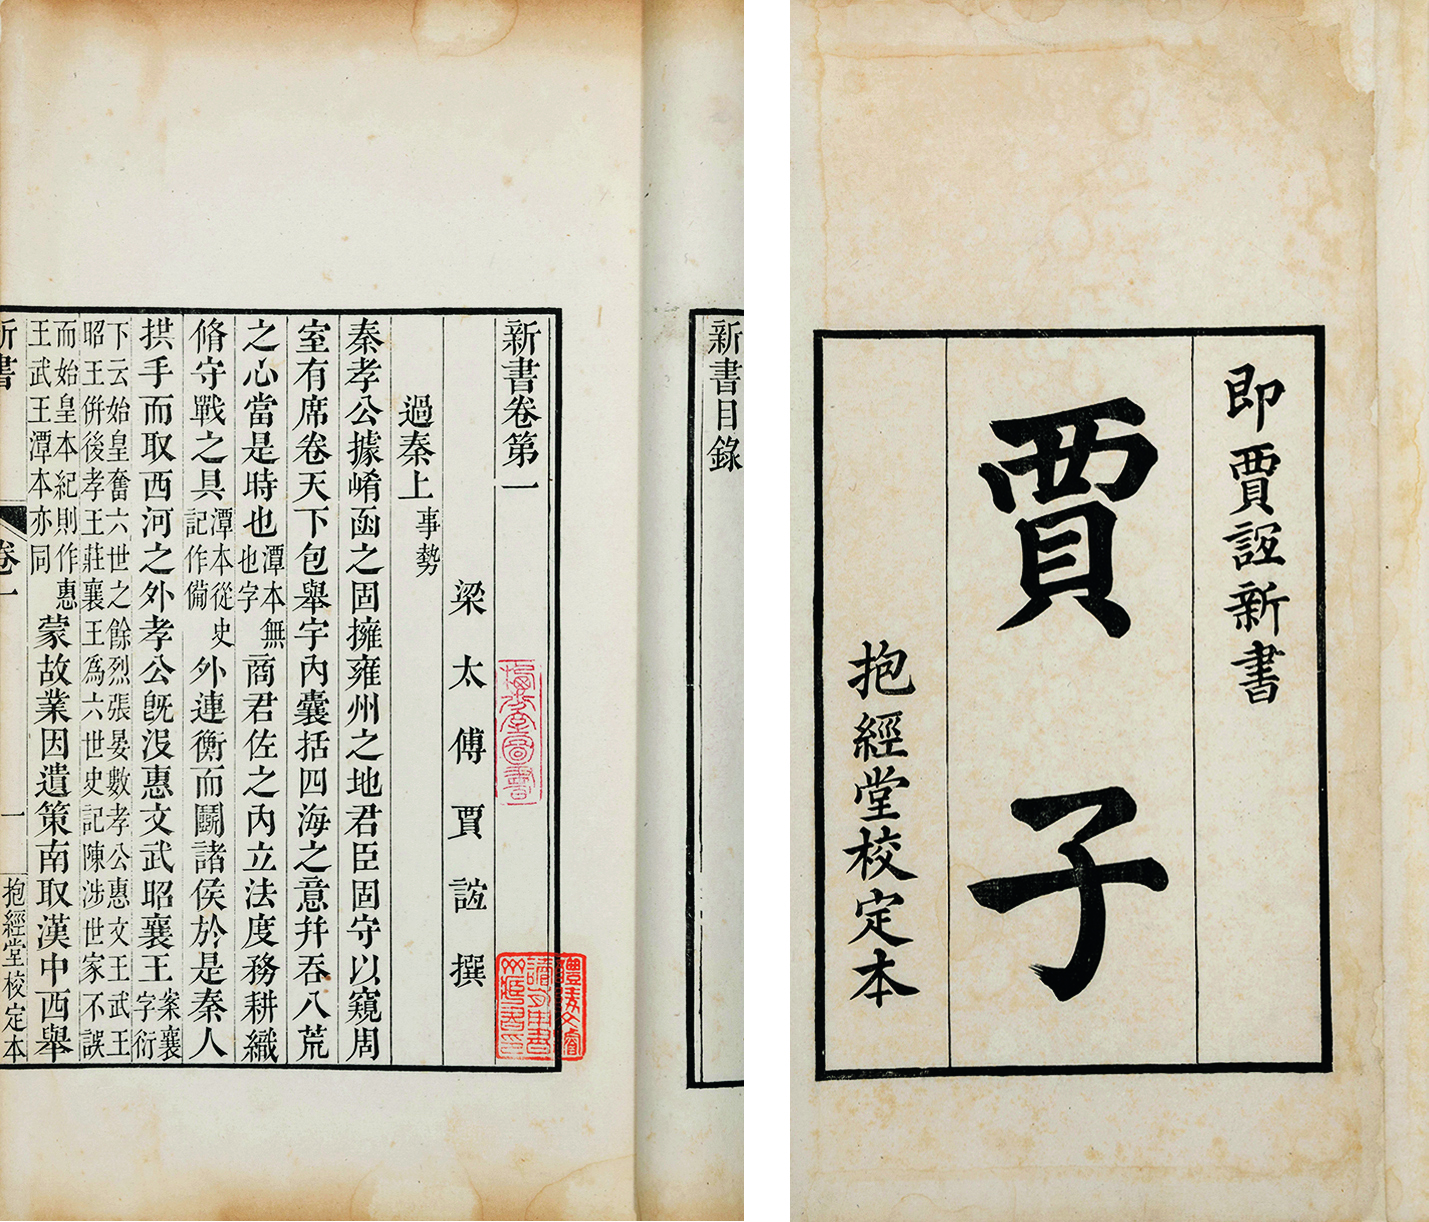 即賈誼新書
賈子
抱經堂校定本
新書目錄
新書卷第一
梁太傅賈誼撰
過秦上事勢
秦孝公據崤函之固擁雍州之地君臣固守以窺周
室有席卷天下包舉宇內囊括四海之意并吞八荒
之心當是時也潭本無也字商君佐之內立法度務耕織
脩守戰之具潭本從史記作備外連衡而鬭諸侯於是秦人
拱手而取西河之外孝公旣沒惠文武昭襄王案襄字衍
下云始皇奮六世之餘烈張晏數孝公惠文王武王
昭王併後孝王莊襄王爲六世史記陳涉世家不誤
而始皇本紀則作惠王武王潭本亦同蒙故業因遺策南取漢中西舉
新書
卷一
一
抱經堂校定本